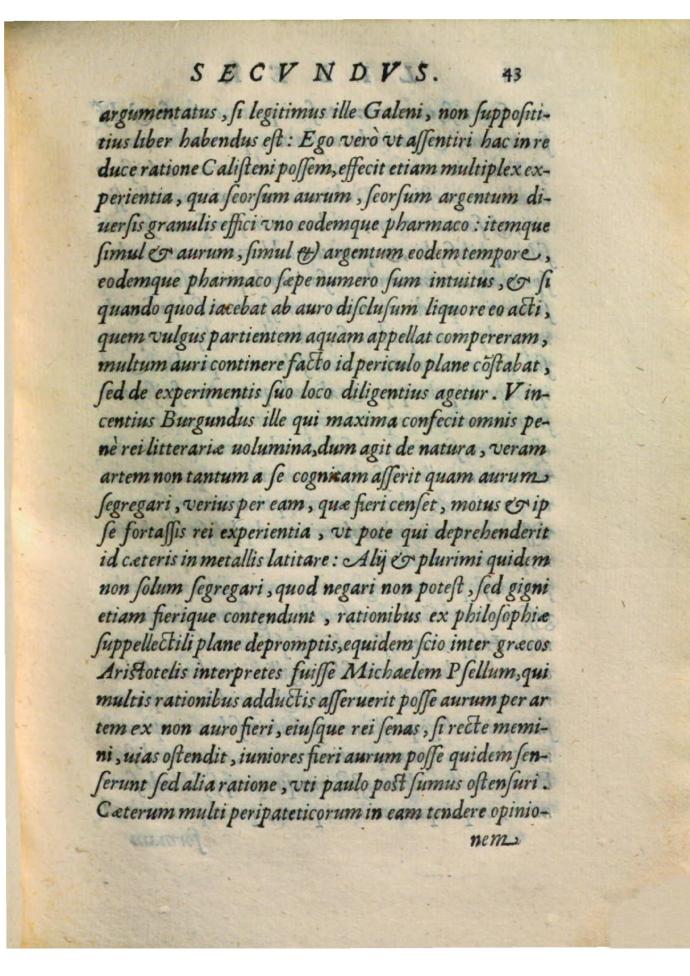 SECVNDVS. 43
argumentatus, si legitimus ille Galeni, non supposititi-
tius liber habendus est: Ego verò vt assentiri hac in re
duce ratione Calisteni possem, effecit etiam multiplex ex-
perientia, qua seorsum aurum, seorsum argentum di-
uersis granulis effici vno eodemque pharmaco: itemque
simul & aurum, simul & argentum eodem tempore,
eodemque pharmaco sæpe numero sum intuitus, & si
quando quod iacebat ab auro disclusum liquore eo acti,
quem vulgus partientem aquam appellat compereram,
multum auri continere facto id periculo plane cõstabat,
sed de experimentis suo loco diligentius agetur. Vin-
centius Burgundus ille qui maxima confecit omnis pe-
nè rei litterariæ uolumina, dum agit de natura, veram
artem non tantum a se cognitam asserit quam aurum
segregari, verius per eam, quæ fieri censet, motus & ip
se fortassis rei experientia, vt pote qui deprehenderit
id cæteris in metallis latitare: Alij & plurimi quidem
non solum segregari, quod negari non potest, sed gigni
etiam fierique contendunt, rationibus ex philosophiæ
suppellectili plane depromptis, equidem scio inter græcos
Aristotelis interpretes fuisse Michaelem Psellum, qui
multis rationibus adductis asseruerit posse aurum per ar
tem ex non auro fieri, eiusque rei senas, si recte memi-
ni, uias ostendit, iuniores fieri aurum posse quidem sen-
serunt sed alia ratione, vti paulo post sumus ostensuri.
Cæterum multi peripateticorum in eam tendere opinio-
nem